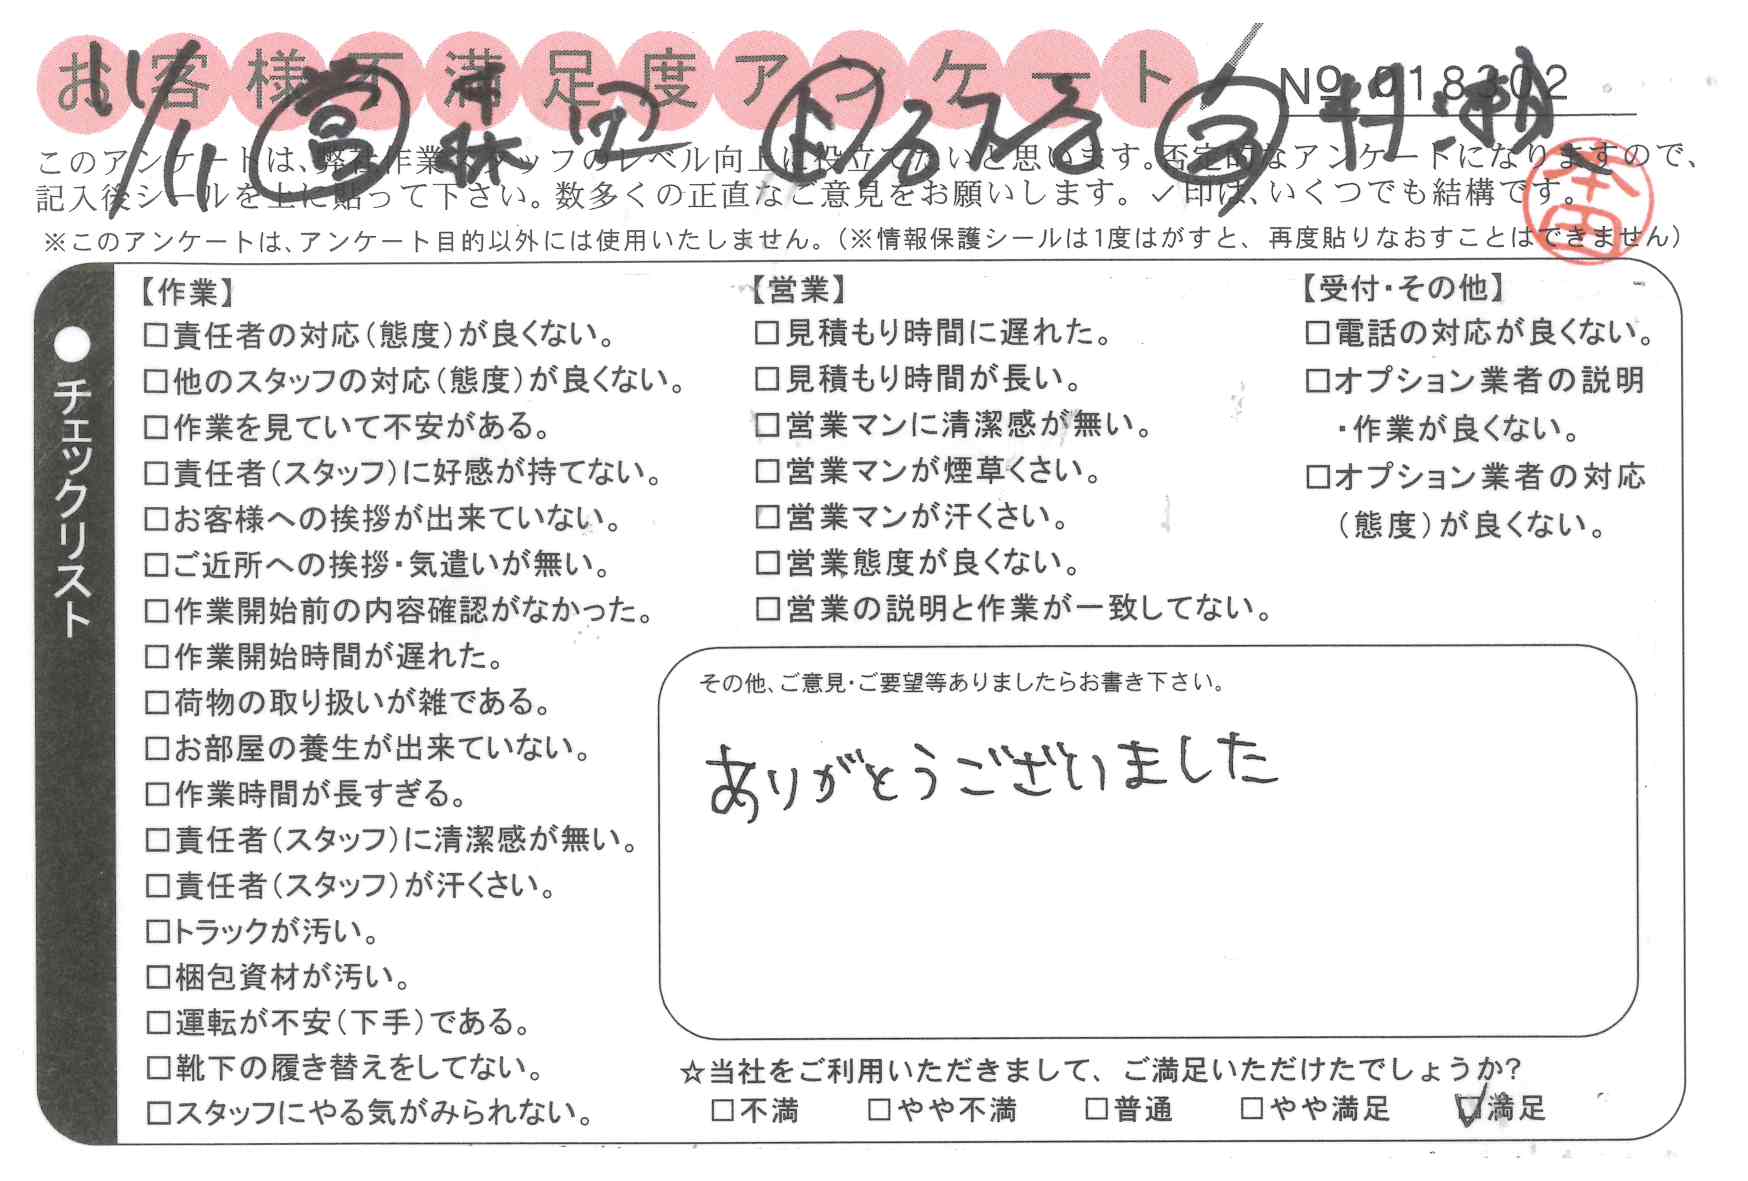 お客様不満足度アンケート
№ 018302
11/11 ㊂
このアンケートは、弊社作業スタッフのレベル向上に役立てたいと思います。否定的なアンケートになりますので、
記入後シールを上に貼って下さい。数多くの正直なご意見をお願いします。✓印は、いくつでも結構です。
※このアンケートは、アンケート目的以外には使用いたしません。（※情報保護シールは1度はがすと、再度貼りなおすことはできません）
本田
●チェックリスト
【作業】
□責任者の対応（態度）が良くない。
□他のスタッフの対応（態度）が良くない。
□作業を見ていて不安がある。
□責任者（スタッフ）に好感が持てない。
□お客様への挨拶が出来ていない。
□ご近所への挨拶・気遣いが無い。
□作業開始前の内容確認がなかった。
□作業開始時間が遅れた。
□荷物の取り扱いが雑である。
□お部屋の養生が出来ていない。
□作業時間が長すぎる。
□責任者（スタッフ）に清潔感が無い。
□責任者（スタッフ）が汗くさい。
□トラックが汚い。
□梱包資材が汚い。
□運転が不安（下手）である。
□靴下の履き替えをしてない。
□スタッフにやる気がみられない。
【営業】
□見積もり時間に遅れた。
□見積もり時間が長い。
□営業マンに清潔感が無い。
□営業マンが煙草くさい。
□営業マンが汗くさい。
□営業態度が良くない。
□営業の説明と作業が一致してない。
【受付・その他】
□電話の対応が良くない。
□オプション業者の説明
・作業が良くない。
□オプション業者の対応
（態度）が良くない。
その他、ご意見・ご要望等ありましたらお書き下さい。
ありがとうございました
☆当社をご利用いただきまして、ご満足いただけたでしょうか?
□不満 □やや不満 □普通 □やや満足 ☑満足